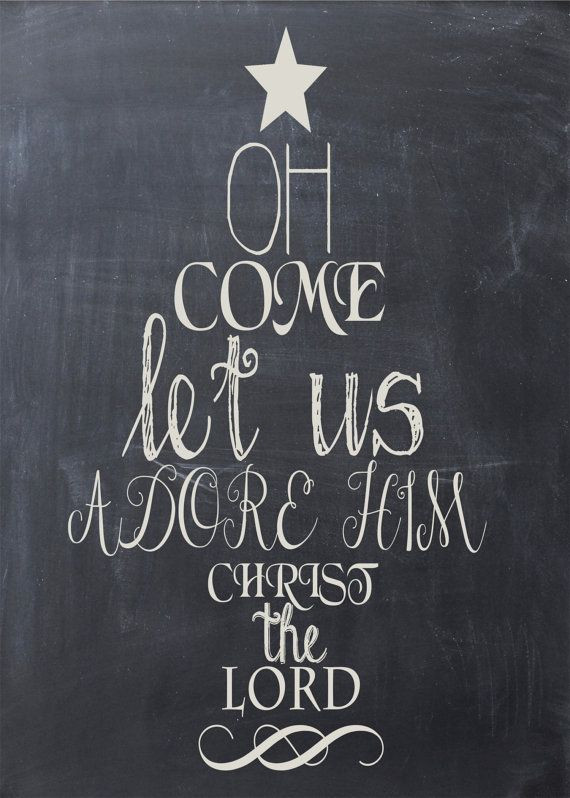 OH
COME
let us
ADORE HIM
CHRIST
the
LORD